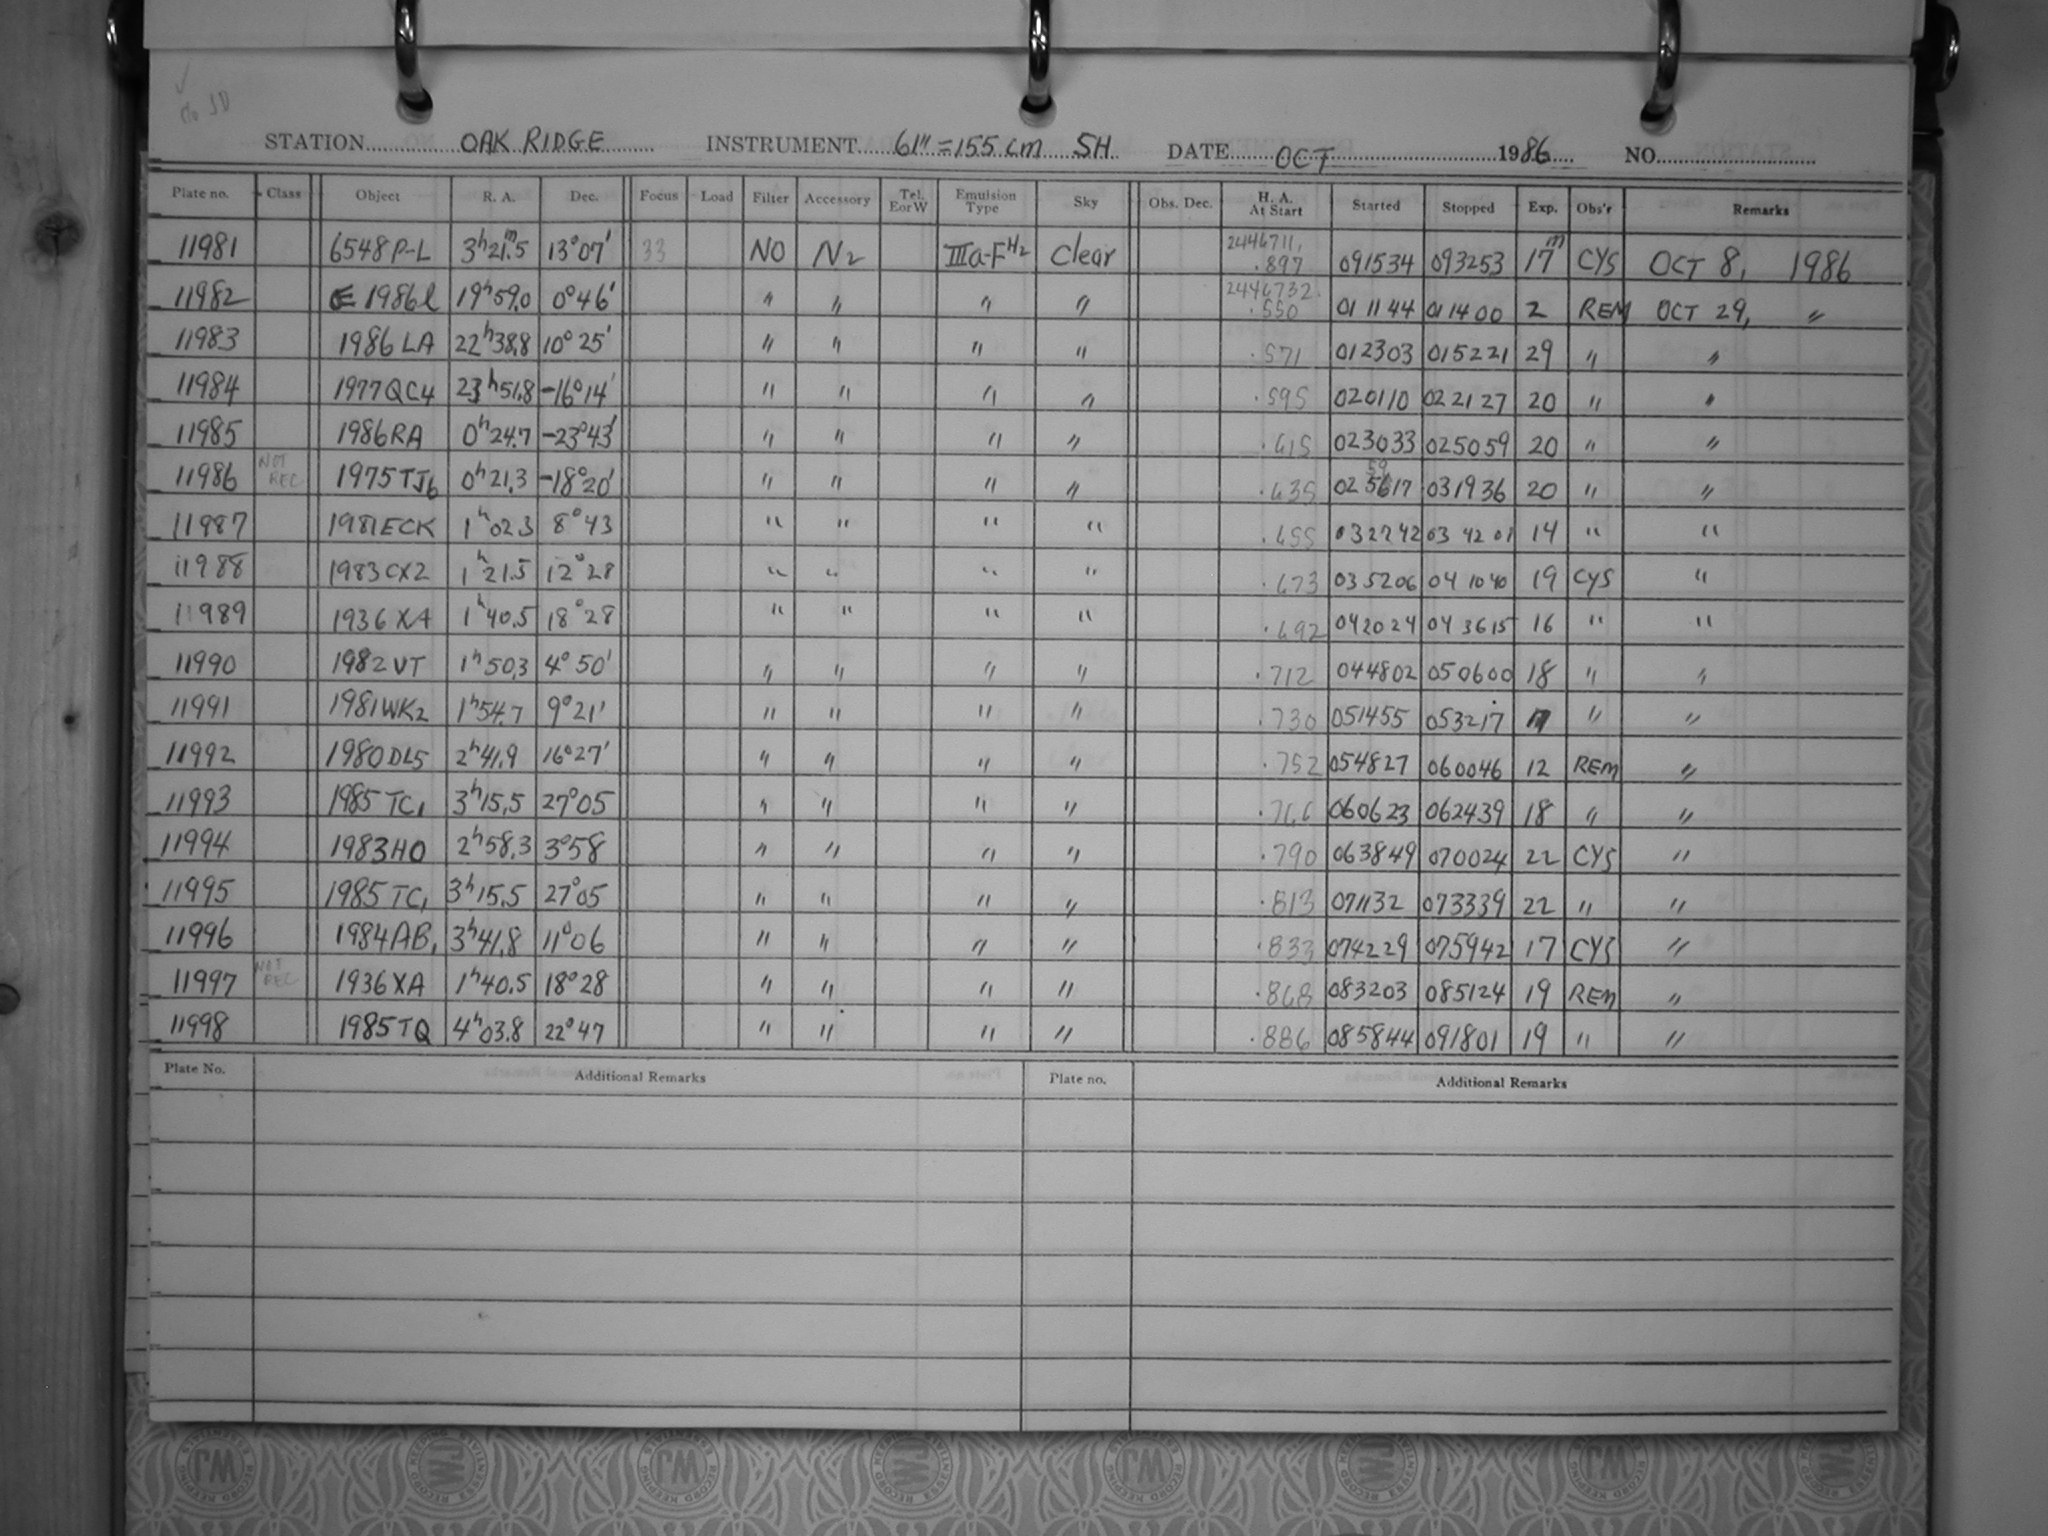 ✓
No JD
STATION OAK RIDGE INSTRUMENT 61"=155 cm SH DATE OCT 1986 NO.
Plate no. Class Object R. A. Dec. Focus Load Filter Accessory Tel. E or W Emulsion Type Sky Obs. Dec. H. A. At Start Started Stopped Exp. Obs'r Remarks
11981 6548 P-L 3h21m.5 13°07' 33 NO N2 IIIa-F H2 Clear 2446711. .897 091534 093253 17m CYS OCT 8, 1986
11982 C 1986l 19h59.0 0°46' " " " " 2446732. .550 011144 011400 2 REM OCT 29, "
11983 1986 LA 22h38.8 10°25' " " " " .571 012303 015221 29 " "
11984 1977 QC4 23h51.8 -16°14' " " " " .595 020110 022127 20 " "
11985 1986 RA 0h24.7 -23°43' " " " " .615 023033 025059 20 " "
11986 NOT REC 1975 TJ6 0h21.3 -18°20' " " " " .635 025917 031936 20 " "
11987 1981 ECK 1h02.3 8°43 " " " " .655 032742 034201 14 " "
11988 1983 CX2 1h21.5 12°28 " " " " .673 035206 041040 19 CYS "
11989 1936 XA 1h40.5 18°28 " " " " .692 042024 043615 16 " "
11990 1982 VT 1h50.3 4°50' " " " " .712 044802 050600 18 " "
11991 1981 WK2 1h54.7 9°21' " " " " .730 051455 053217 17 " "
11992 1980 DL5 2h41.9 16°27' " " " " .752 054827 060046 12 REM "
11993 1985 TC1 3h15.5 27°05 " " " " .766 060623 062439 18 " "
11994 1983 HO 2h58.3 3°58 " " " " .790 063849 070024 22 CYS "
11995 1985 TC1 3h15.5 27°05 " " " " .813 071132 073339 22 " "
11996 1984 AB1 3h41.8 11°06 " " " " .833 074229 075942 17 CYS "
11997 NOT REC 1936 XA 1h40.5 18°28 " " " " .868 083203 085124 19 REM "
11998 1985 TQ 4h03.8 22°47 " " " " .886 085844 091801 19 " "
Plate No. Additional Remarks Plate no. Additional Remarks